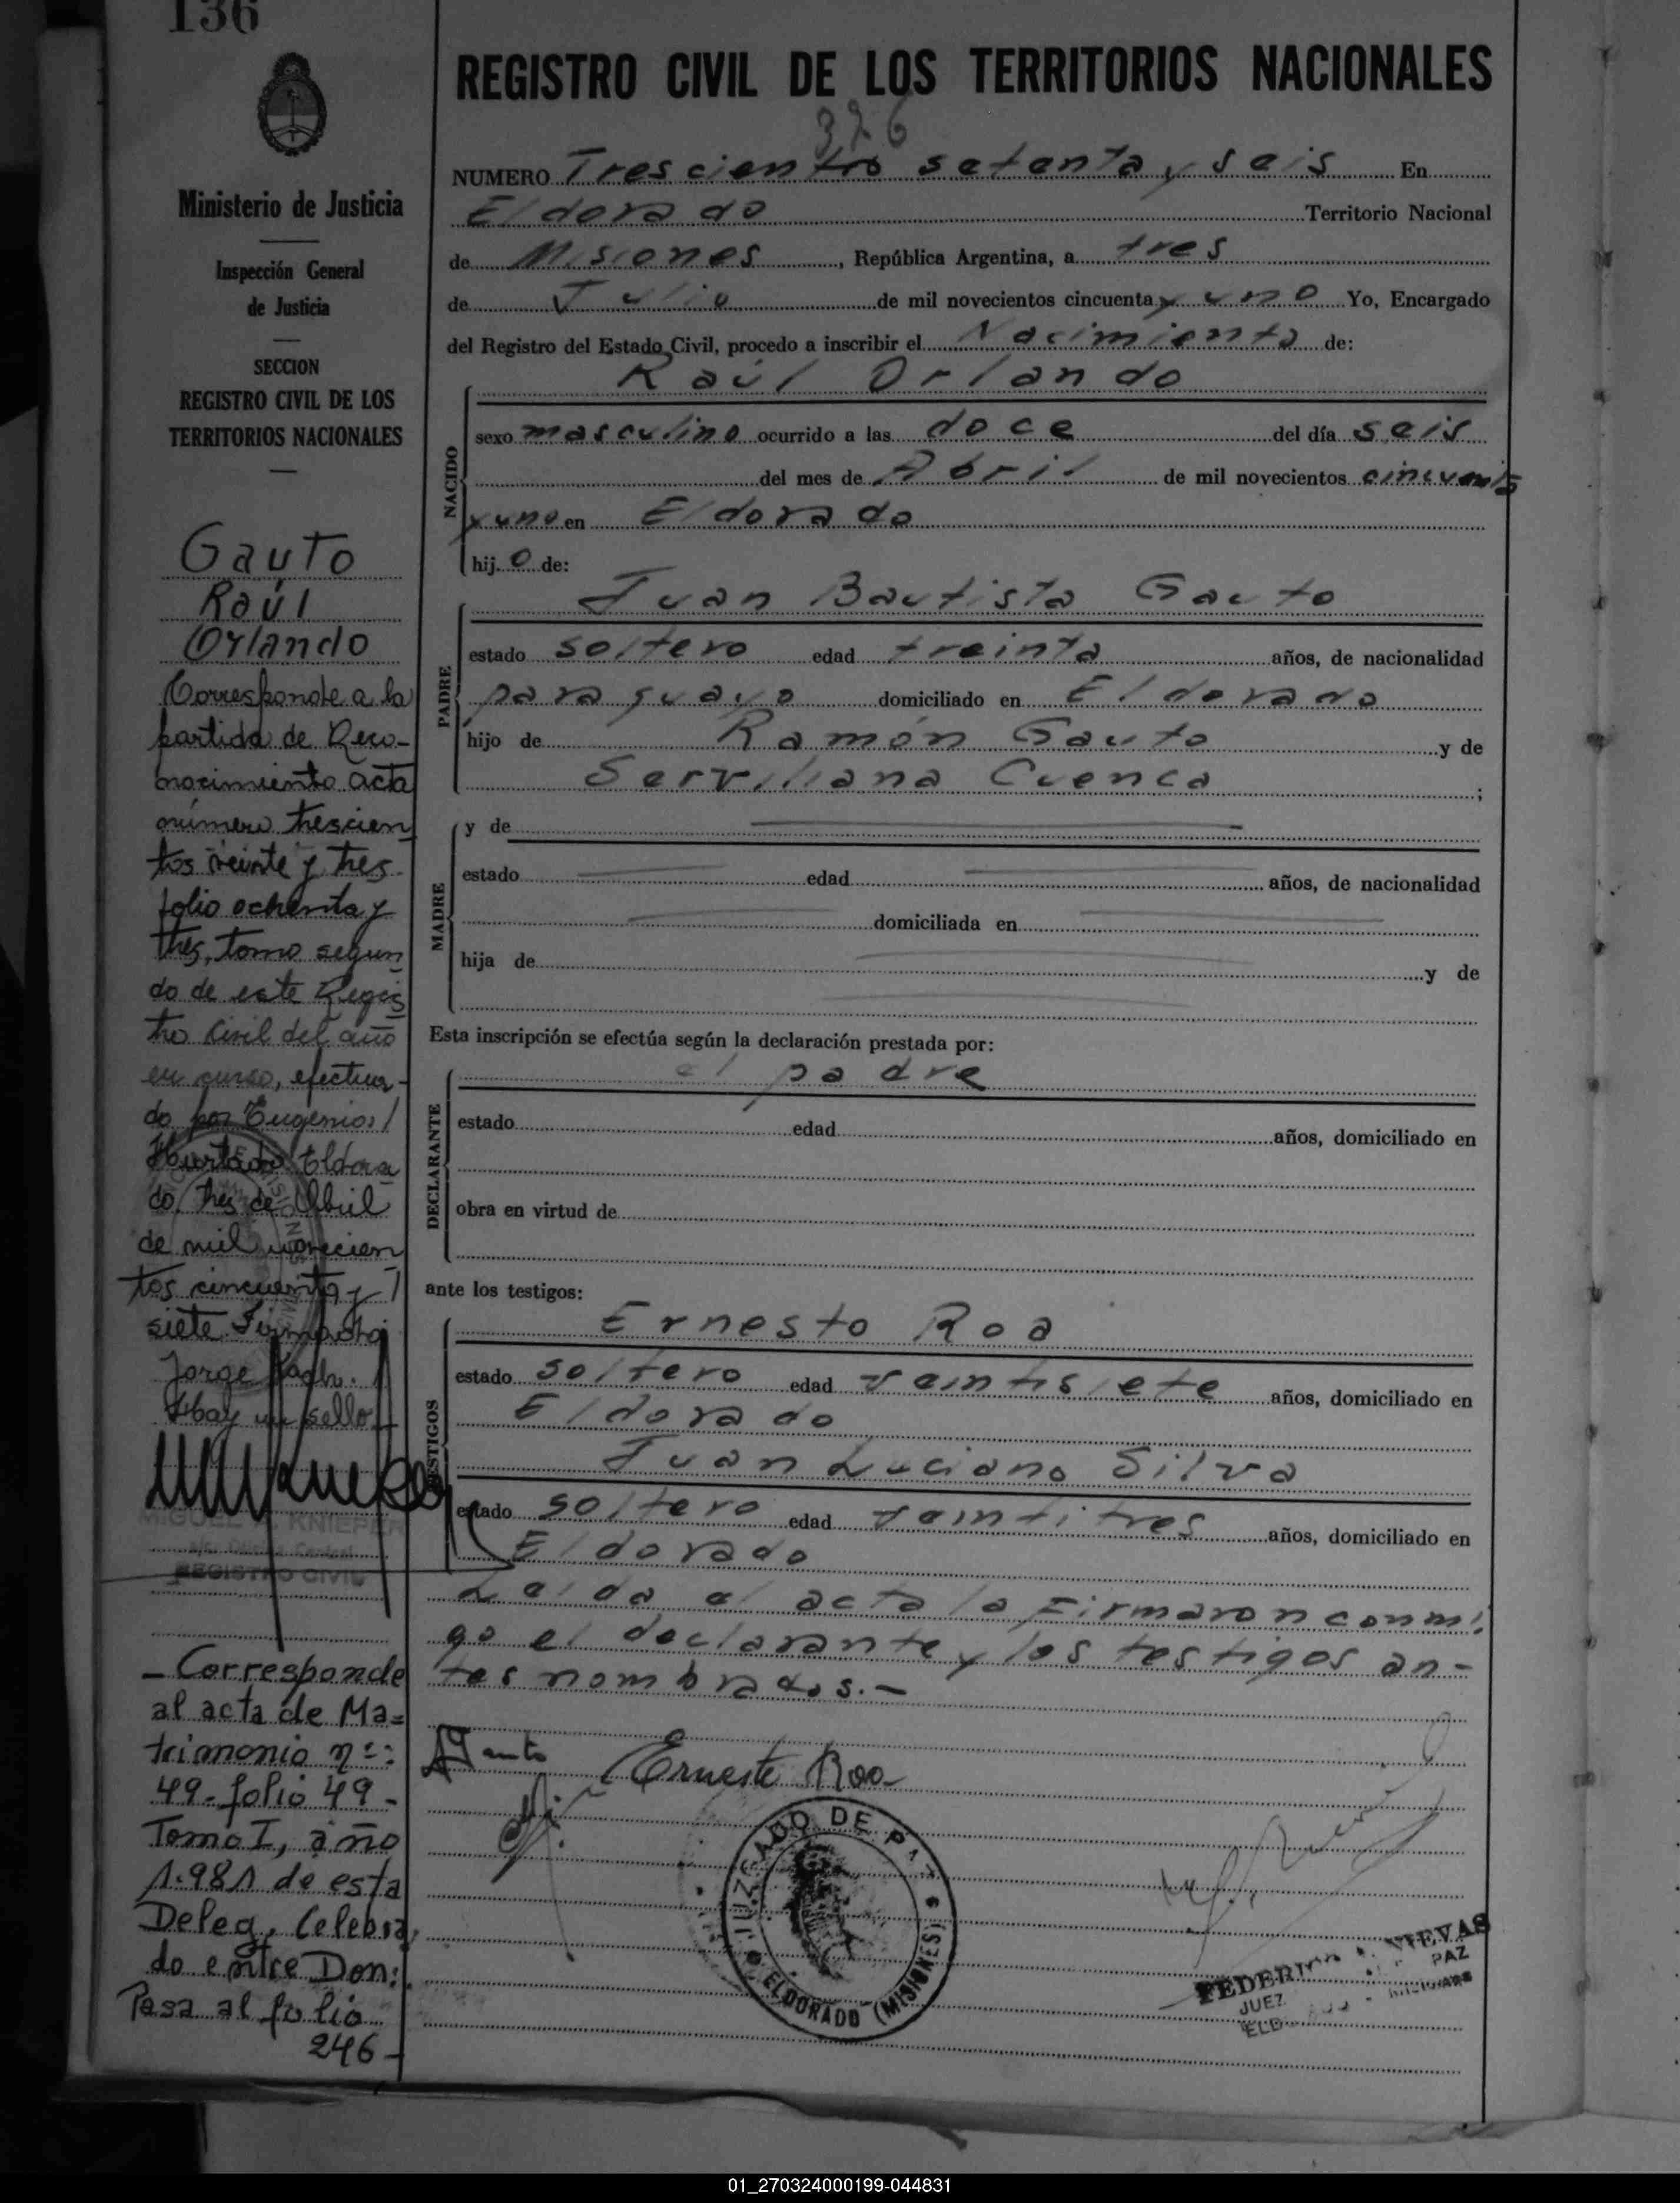 136
Ministerio de Justicia
Inspección General
de Justicia
SECCION
REGISTRO CIVIL DE LOS
TERRITORIOS NACIONALES
Gauto
Raúl
Orlando
Corresponde a la
partida de Reco-
nocimiento acta
número trescien
tos veinte y tres
folio ochenta y
tres, tomo segun
do de este Regis
tro Civil del año
en curso, efectua-
do por Eugenio
Hurtado Eldora
do, tres de Abril
de mil novecien
tos cincuenta y
siete Firmado:
Jorge
Hay un sello
MIGUEL KNIEPER
REGISTRO CIVIL
- Corresponde
al acta de Ma=
trimonio nº:
49- folio 49-
Tomo I, año
1.981 de esta
Deleg. Celebra
do entre Don:
Pasa al folio
246-
REGISTRO CIVIL DE LOS TERRITORIOS NACIONALES
376
NUMERO Trescientro setenta y seis En
Eldorado Territorio Nacional
de Misiones, República Argentina, a tres
de Julio de mil novecientos cincuenta y uno Yo, Encargado
del Registro del Estado Civil, procedo a inscribir el Nacimiento de:
Raúl Orlando
NACIDO
sexo masculino ocurrido a las doce del día seis
del mes de Abril de mil novecientos cincuenta
y uno en Eldorado
hij o de:
Juan Bautista Gauto
PADRE
estado soltero edad treinta años, de nacionalidad
paraguayo domiciliado en Eldorado
hijo de Ramón Gauto y de
Serviliana Cuenca;
MADRE
y de
estado edad años, de nacionalidad
domiciliada en
hija de y de
Esta inscripción se efectúa según la declaración prestada por:
el padre
DECLARANTE
estado edad años, domiciliado en
obra en virtud de
ante los testigos:
Ernesto Roa
TESTIGOS
estado soltero edad veintisiete años, domiciliado en
Eldorado
Juan Luciano Silva
estado soltero edad veintitres años, domiciliado en
Eldorado
Leida el acta la Firmaron conmi
go el declarante y los testigos an-
tes nombrados.-
Gauto Ernesto Roa
JUZGADO DE PAZ
ELDORADO (MISIONES)
FEDERICO VIEVAS
JUEZ PAZ
01_270324000199-044831